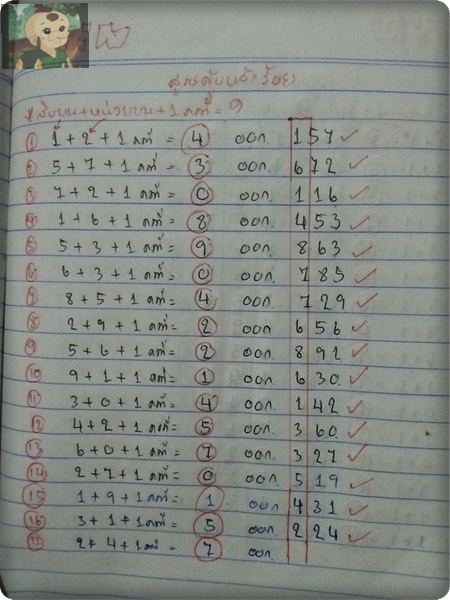 สูตรดับหลักร้อย
* สิบบน+หน่วยบน+1 คงที่ = ?
① 1 + 2 + 1 คงที่ = 4 ออก. 157 ✓
② 5 + 7 + 1 คงที่ = 3 ออก. 672 ✓
③ 7 + 2 + 1 คงที่ = 0 ออก. 116 ✓
④ 1 + 6 + 1 คงที่ = 8 ออก. 453 ✓
⑤ 5 + 3 + 1 คงที่ = 9 ออก. 863 ✓
⑥ 6 + 3 + 1 คงที่ = 0 ออก. 785 ✓
⑦ 8 + 5 + 1 คงที่ = 4 ออก. 729 ✓
⑧ 2 + 9 + 1 คงที่ = 2 ออก. 656 ✓
⑨ 5 + 6 + 1 คงที่ = 2 ออก. 892 ✓
⑩ 9 + 1 + 1 คงที่ = 1 ออก. 630. ✓
⑪ 3 + 0 + 1 คงที่ = 4 ออก. 142 ✓
⑫ 4 + 2 + 1 คงที่ = 5 ออก. 360. ✓
⑬ 6 + 0 + 1 คงที่ = 7 ออก. 327 ✓
⑭ 2 + 7 + 1 คงที่ = 0 ออก. 519 ✓
⑮ 1 + 9 + 1 คงที่ = 1 ออก 431 ✓
⑯ 3 + 1 + 1 คงที่ = 5 ออก. 224 ✓
⑰ 2 + 4 + 1 คงที่ = 7 ออก.